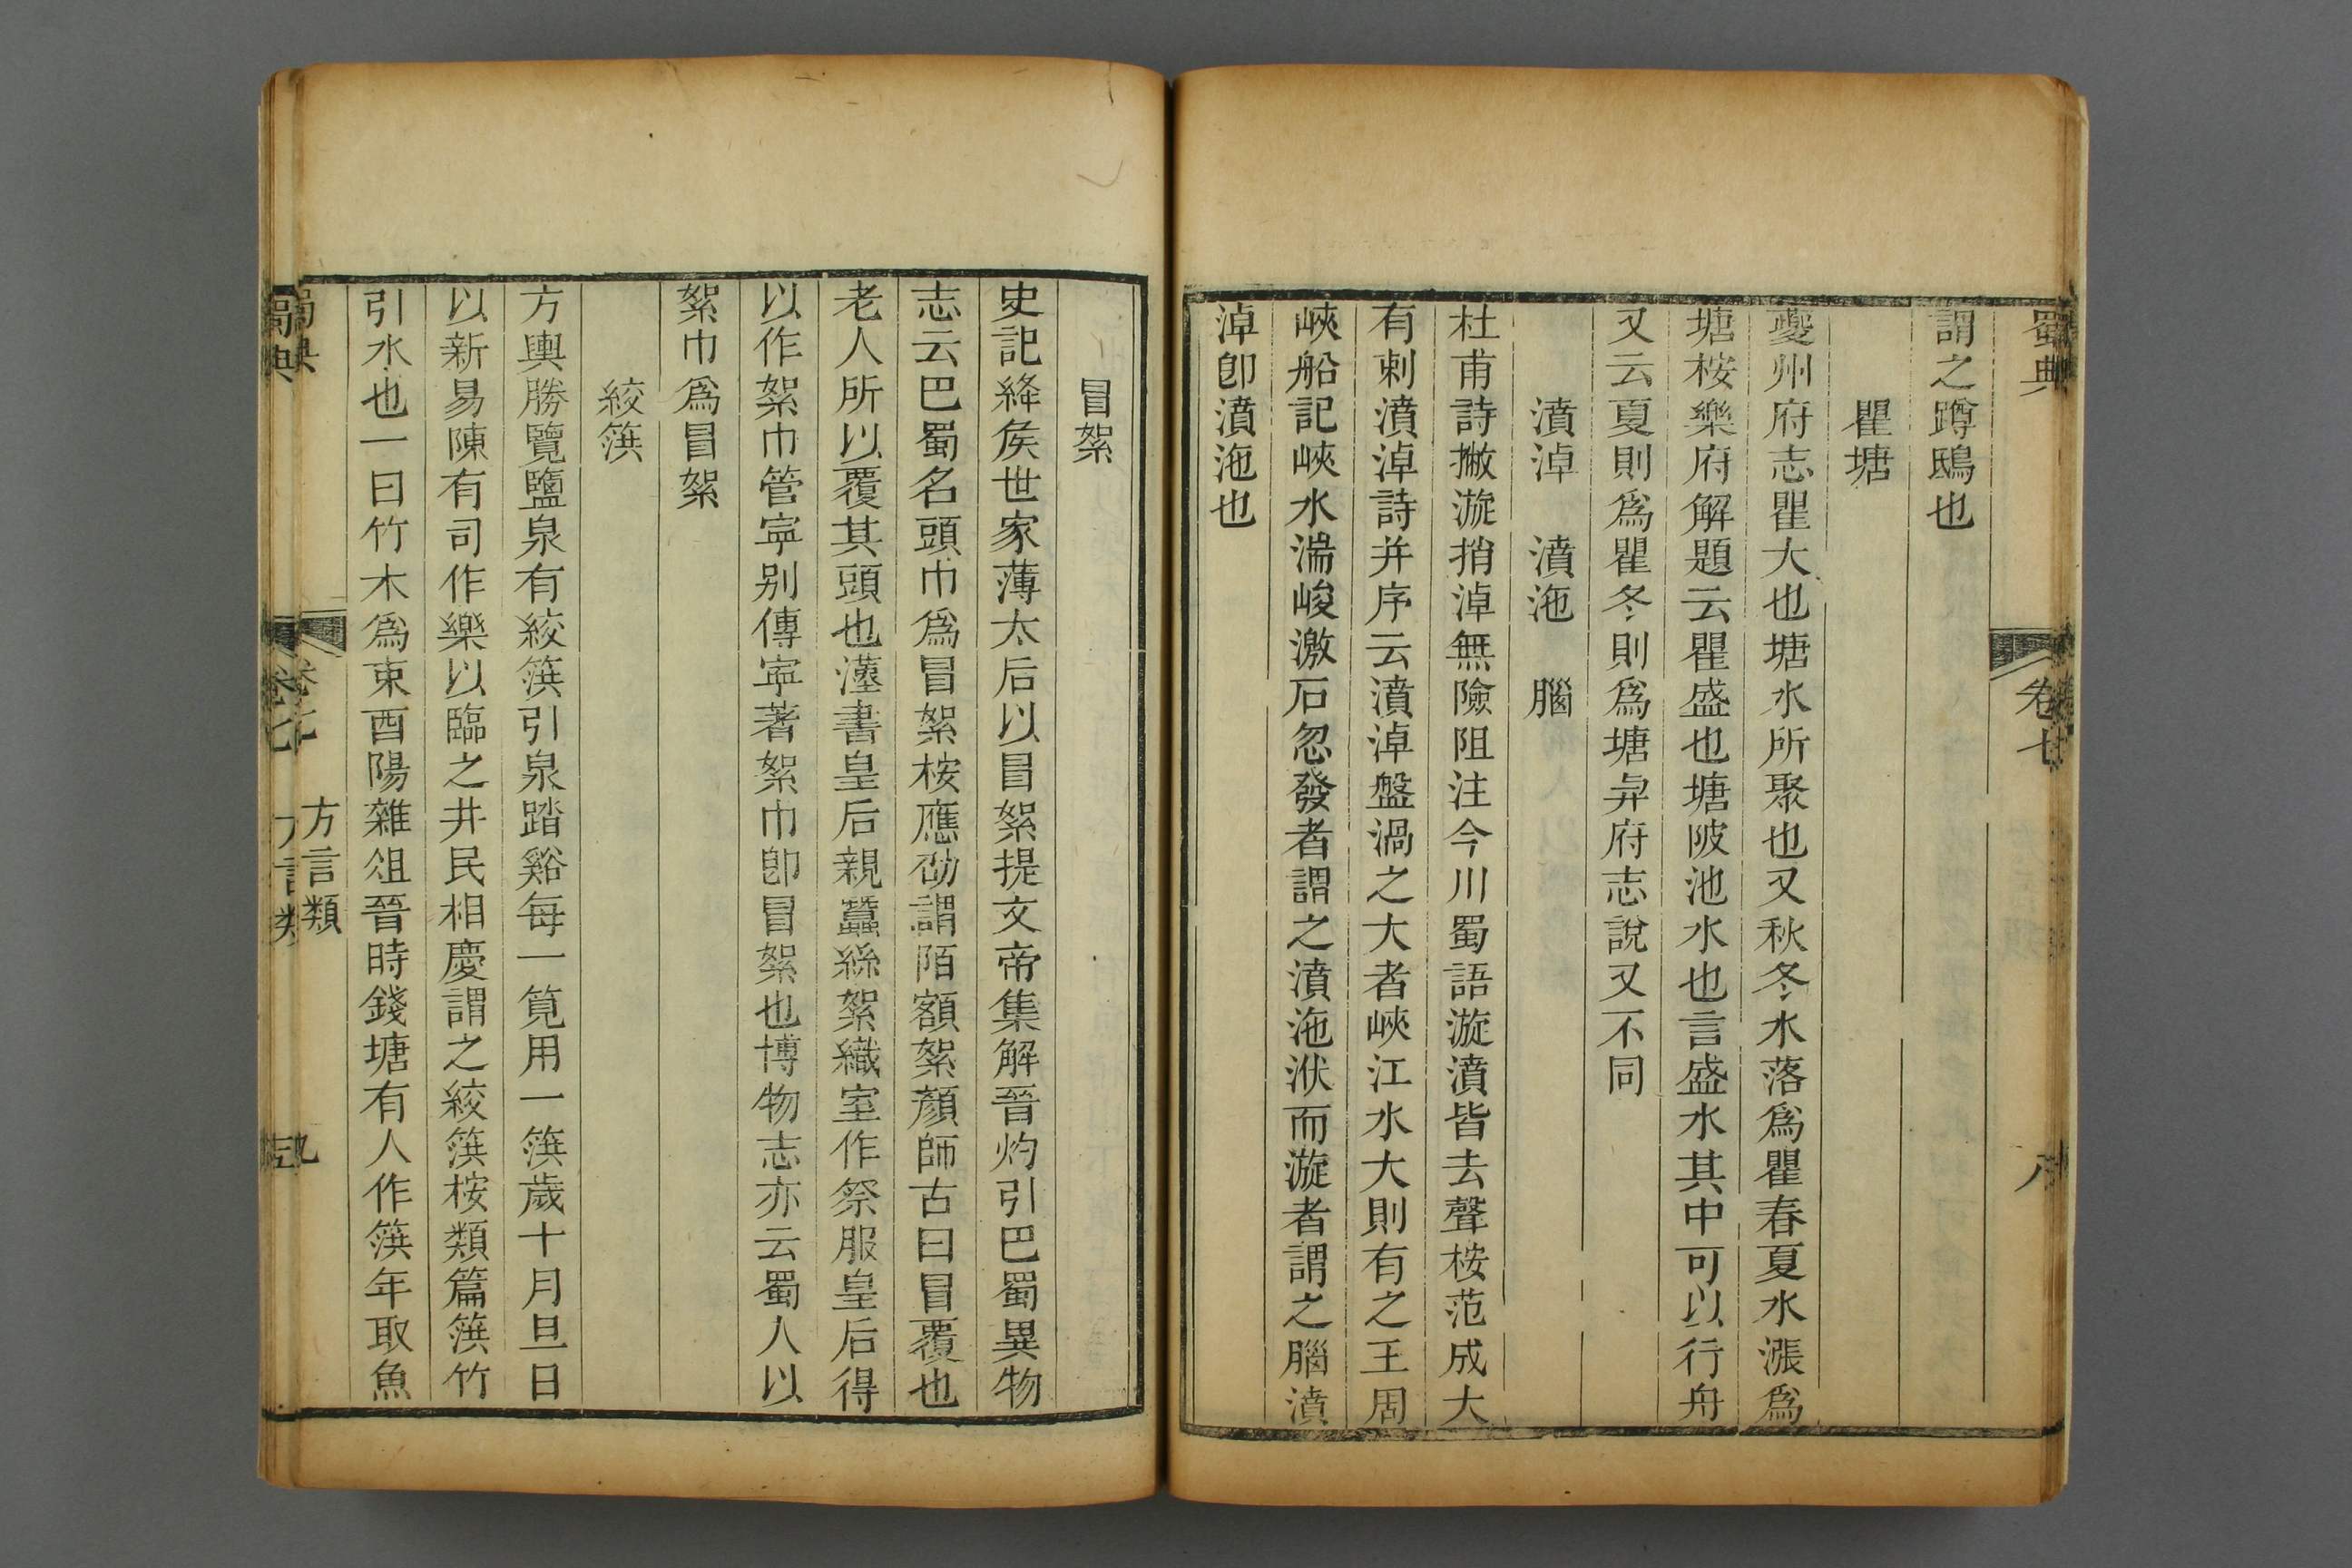 蜀典 卷七 八
謂之蹲鴟也
瞿塘
夔州府志瞿大也塘水所聚也又秋冬水落爲瞿春夏水漲爲
塘桉樂府解題云瞿盛也塘陂池水也言盛水其中可以行舟
又云夏則爲瞿冬則爲塘與府志說又不同
濆淖 濆㳸 腦
杜甫詩撇漩捎淖無險阻注今川蜀語漩濆皆去聲桉范成大
有刺濆淖詩幷序云濆淖盤渦之大者峽江水大則有之王周
峽船記峽水湍峻激石忽發者謂之濆㳸洑而漩者謂之腦濆
淖卽濆㳸也
冒絮
史記絳矦世家薄太后以冒絮提文帝集解晉灼引巴蜀異物
志云巴蜀名頭巾爲冒絮桉應劭謂陌額絮顏師古曰冒覆也
老人所以覆其頭也漢書皇后親蠶絲絮織室作祭服皇后得
以作絮巾管寧别傳寧著絮巾卽冒絮也博物志亦云蜀人以
絮巾爲冒絮
絞篊
方輿勝覽鹽泉有絞篊引泉踏谿每一筧用一篊歲十月旦日
以新易陳有司作樂以臨之井民相慶謂之絞篊桉類篇篊竹
引水也一曰竹木爲束酉陽雜俎晉時錢塘有人作篊年取魚
蜀典 卷七 方言類 九